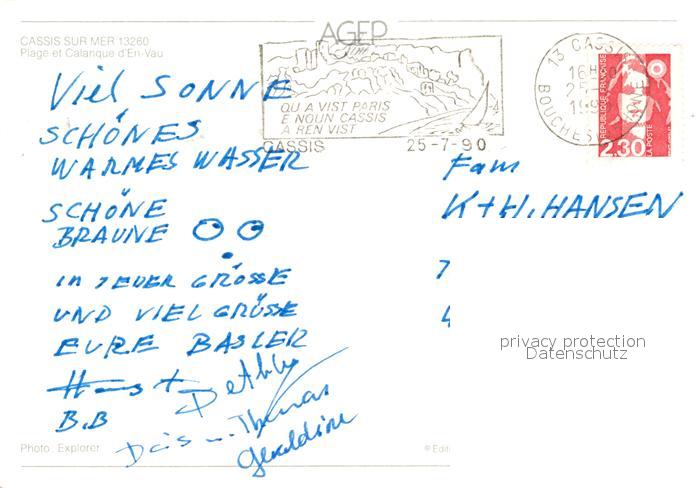 AGEP
CASSIS SUR MER 13260
Plage et Calanque d'En-Vau
QU A VIST PARIS
E NOUN CASSIS
A REN VIST
CASSIS 25-7-90
13 CASSIS
16H
25
BOUCHES
REPUBLIQUE FRANÇAISE
2,30
LA POSTE
Viel SONNE
SCHÖNES
WARMES WASSER
SCHÖNE
BRAUNE
IN JEDER GRÖSSE
UND VIEL GRÜSSE
EURE BASLER
B.B
Thomas
Geraldine
Fam
K+H. HANSEN
7
4
privacy protection
Datenschutz
Photo: Explorer
© Edit